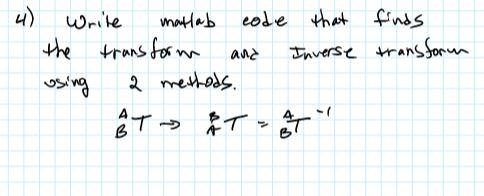 4) Write matlab code that finds
the transform and Inverse transform
using 2 methods.
ᴬ_B T → ᴮ_A T = ᴬ_B T⁻¹